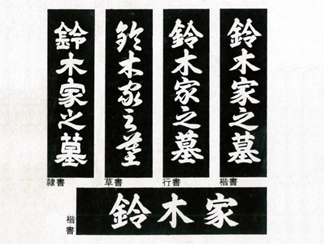 鈴木家之墓
楷書
鈴木家之墓
行書
鈴木家之墓
草書
鈴木家之墓
隷書
鈴木家
楷書